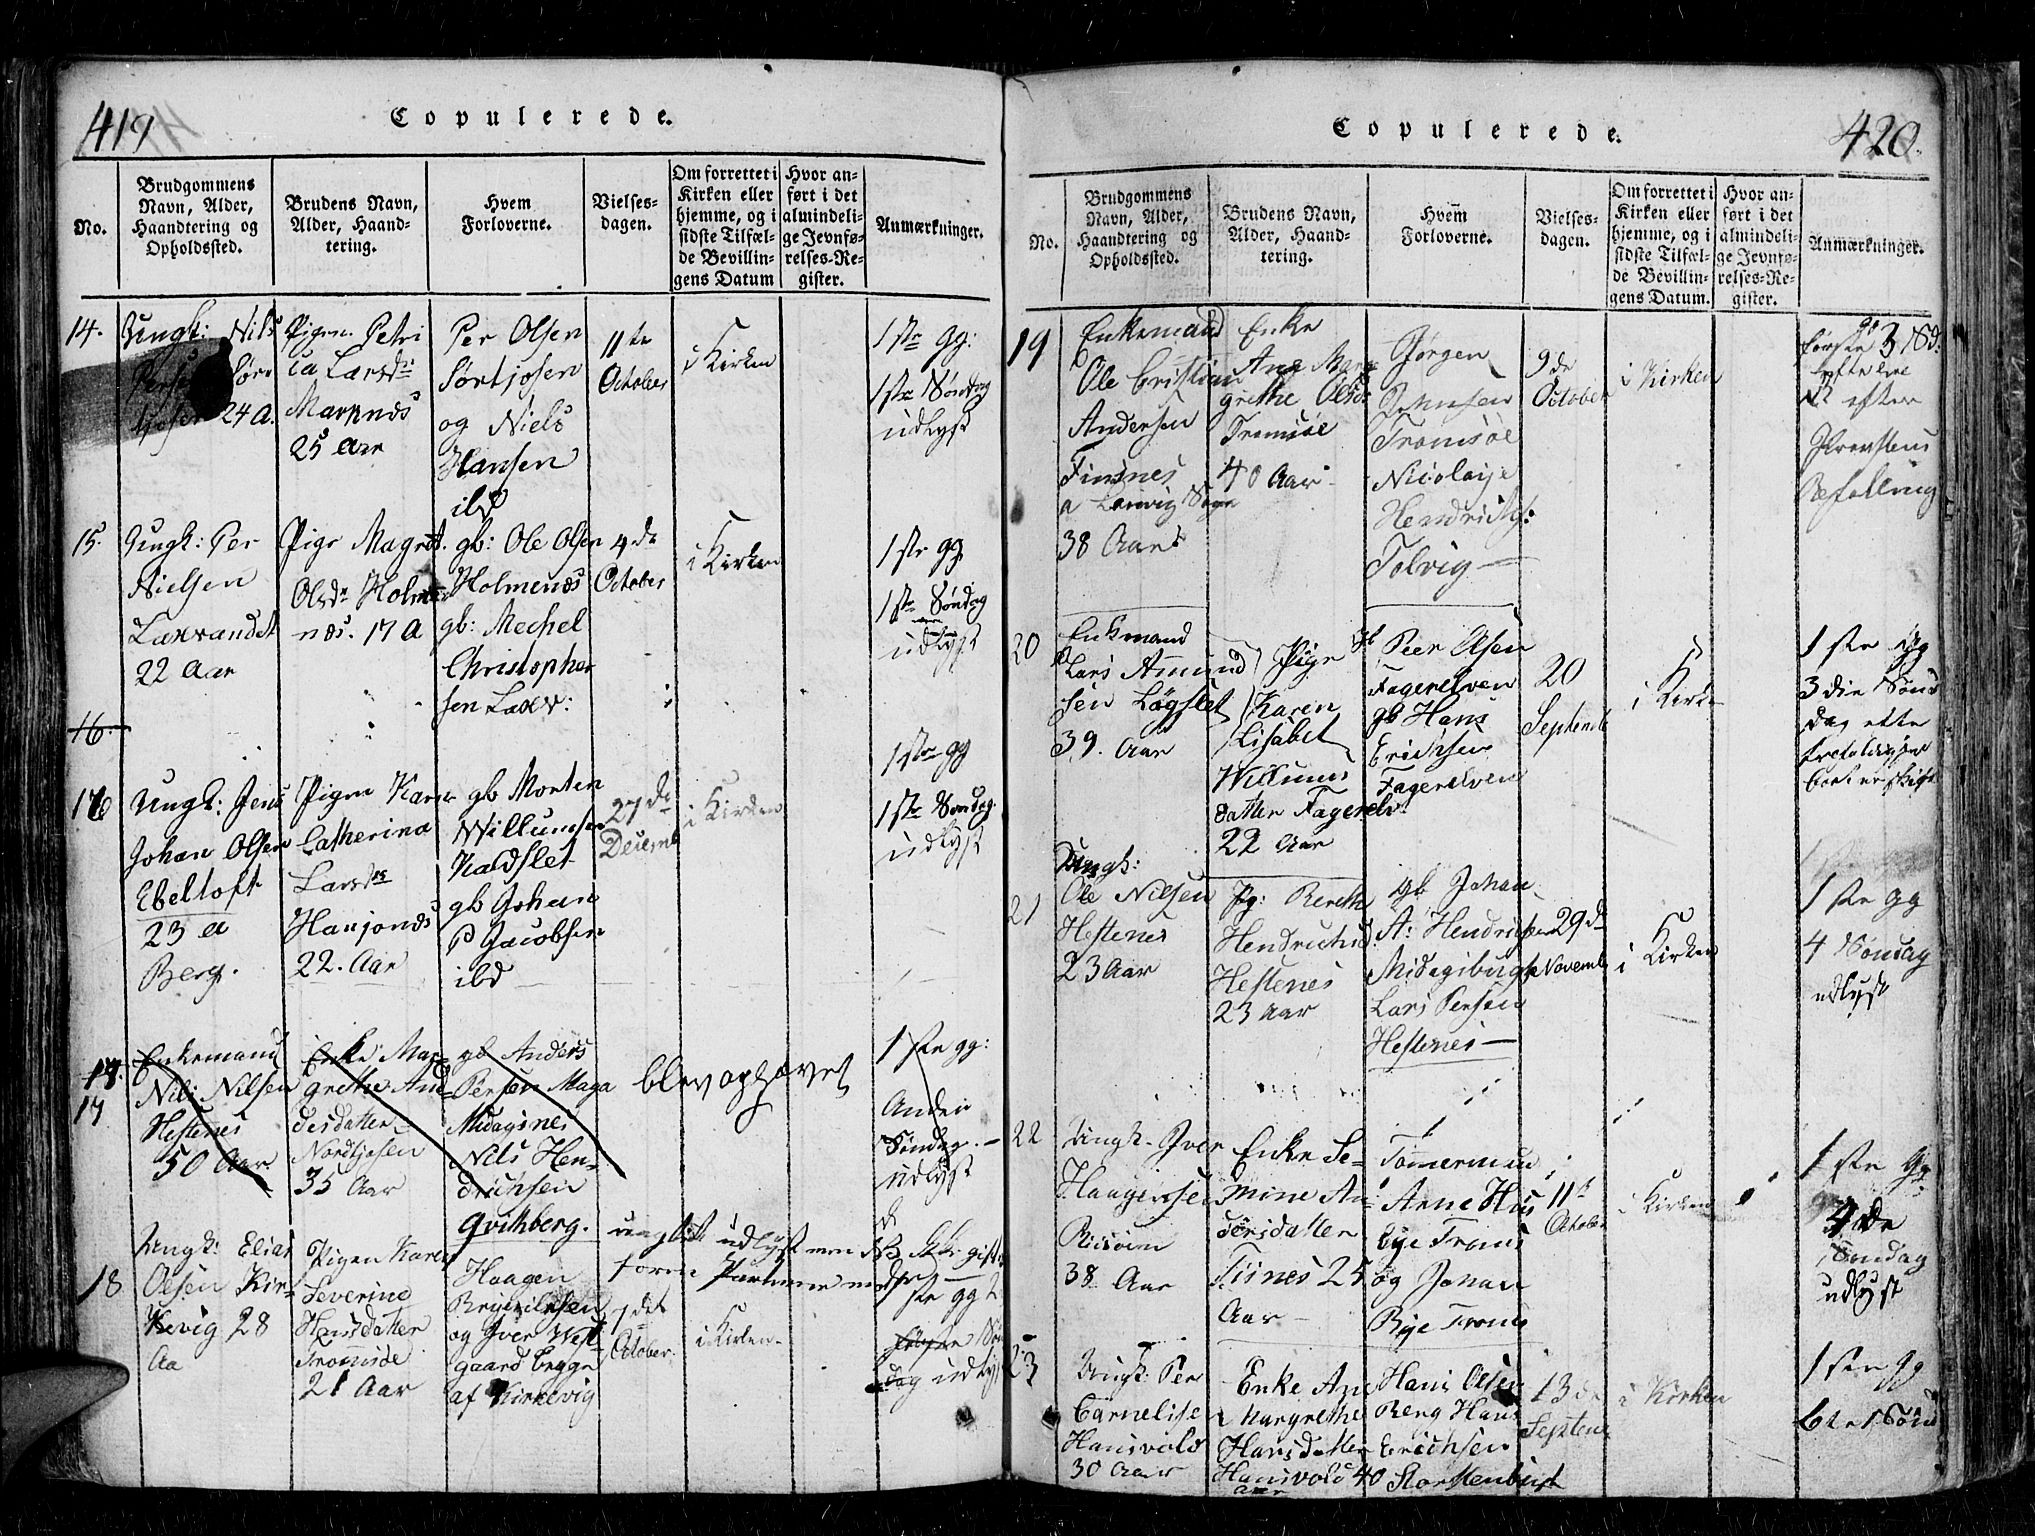 419
Copulerede.
No.
Brudgommens
Navn, Alder,
Haandtering og
Opholdssted.
Brudens Navn,
Alder, Haand-
tering.
Hvem
Forloverne.
Vielses-
dagen.
Om forrettet i
Kirken eller
hjemme, og i
sidste Tilfæl-
de Bevillin-
gens Datum
Hvor an-
ført i det
almindeli-
ge Jevnfø-
relses-Re-
gister.
Anmærkninger.
14.
Ungk: Nils
24 A.
Pigen Petri
ca Larsdr
Marknæs
25 Aar
Per Olsen
Sørtjosen
og Niels
Hansen
ibd
11te
October
i Kirken
1ste gg:
1ste Søndag
udlyst
15.
Ungk: Per
Nielsen
Laxvandet
22 Aar
Pige Magret
Olsdr Holme
næs. 17 A
gb: Ole Olsen
Holmenæs
gb: Mechel
Christopher
sen Laxv:
4de
October
i Kirken
1ste gg
1ste Søndag
udlyst
16.
16
Ungk: Jens
Johan Olsen
Ebeltoft
23 a
Berg.
Pigen Karen
Catherina
Larsdr
Hansjonæs
22. Aar
gb Morten
Willumsen
Kaldslet
gb Johan
P Jacobsen
ibd
27de
Decemb
i Kirken
1ste gg
1ste Søndag
udlyst
17
Enkemand
Nils Nilsen
Hestenes
50 Aar.
Enke Mar
grethe An
desdatter
Nordtjosen
35 Aar
gb Anders
Persen Maga
Midagsnes
Nils Hen-
drichsen
Qvithberg.
blev ophævet
1ste gg:
Anden
Søndag.
udlyst
18
Ungk: Elias
Olsen Kir-
kevig 28
Aa
Pigen Karen
Severine
Hansdatter
Tromsøe
21 Aar
Haagen
og Iver West
gaard begge
af Kirkevig
7de
October.
i Kirken.
udlyst
420.
Copulerede.
No.
Brudgommens
Navn, Alder,
Haandtering og
Opholdssted.
Brudens Navn,
Alder, Haand-
tering.
Hvem
Forloverne.
Vielses-
dagen.
Om forrettet i
Kirken eller
hjemme, og i
sidste Tilfæl-
de Bevillin-
gens Datum.
Hvor an-
ført i det
almindeli-
ge Jevnfø-
relses-Re-
gister.
Anmærkninger.
19
Enkemand
Ole Cristian
Andersen
Finsnes
a Lenvig Sogn
38 Aar
Enke
Ane Mar
grethe Olsdr
Tromsøe
40 Aar
Jørgen
Jensen
Tromsøe
Nicolaije
Hendrichs:
Tolvig
9de
October
i Kirken
efter
Befalling
20
Enkmand
Lars Amund
sen Løgslet
39. Aar
Pige
Karen
Lisabet
Willums
datter Fagerelv
22 Aar
Peer Olsen
Fagerelven
gb Hans
Erichsen
Fagerelven
20
Septemb
i Kirke
1ste gg
3die Søn
dag efter
21
Ungk:
Ole Nilsen
Hestenes
23 Aar
Pg: Bereth
Hestenes
23 Aar
gb Johan
A: Hendrichsen
Lars Persen
Hestenes
29de
Novemb
i Kirken
1ste gg
4 Søndag
udlyst
22
Ungk. Iver
Haagensen
38 Aar
Enke Se-
mine An
dersdatter
Tisnes 25
Aar
Tømmerman
Arne Hus
Eye Troms
og Johan
Bye Troms
11te
Octobe
i Kirken
1ste gg
4de
Søndag
udlyst
23
Ungk: Per
Cornelise
Hansvold
30 Aar
Enke Ane
Margrethe
Hansdatter
Hansvold 40
Aar
Hans Olsen
Berg Hans
Erichsen
Storstenbugt
13de
Septem
i Kirken
1ste gg
6te Sønd